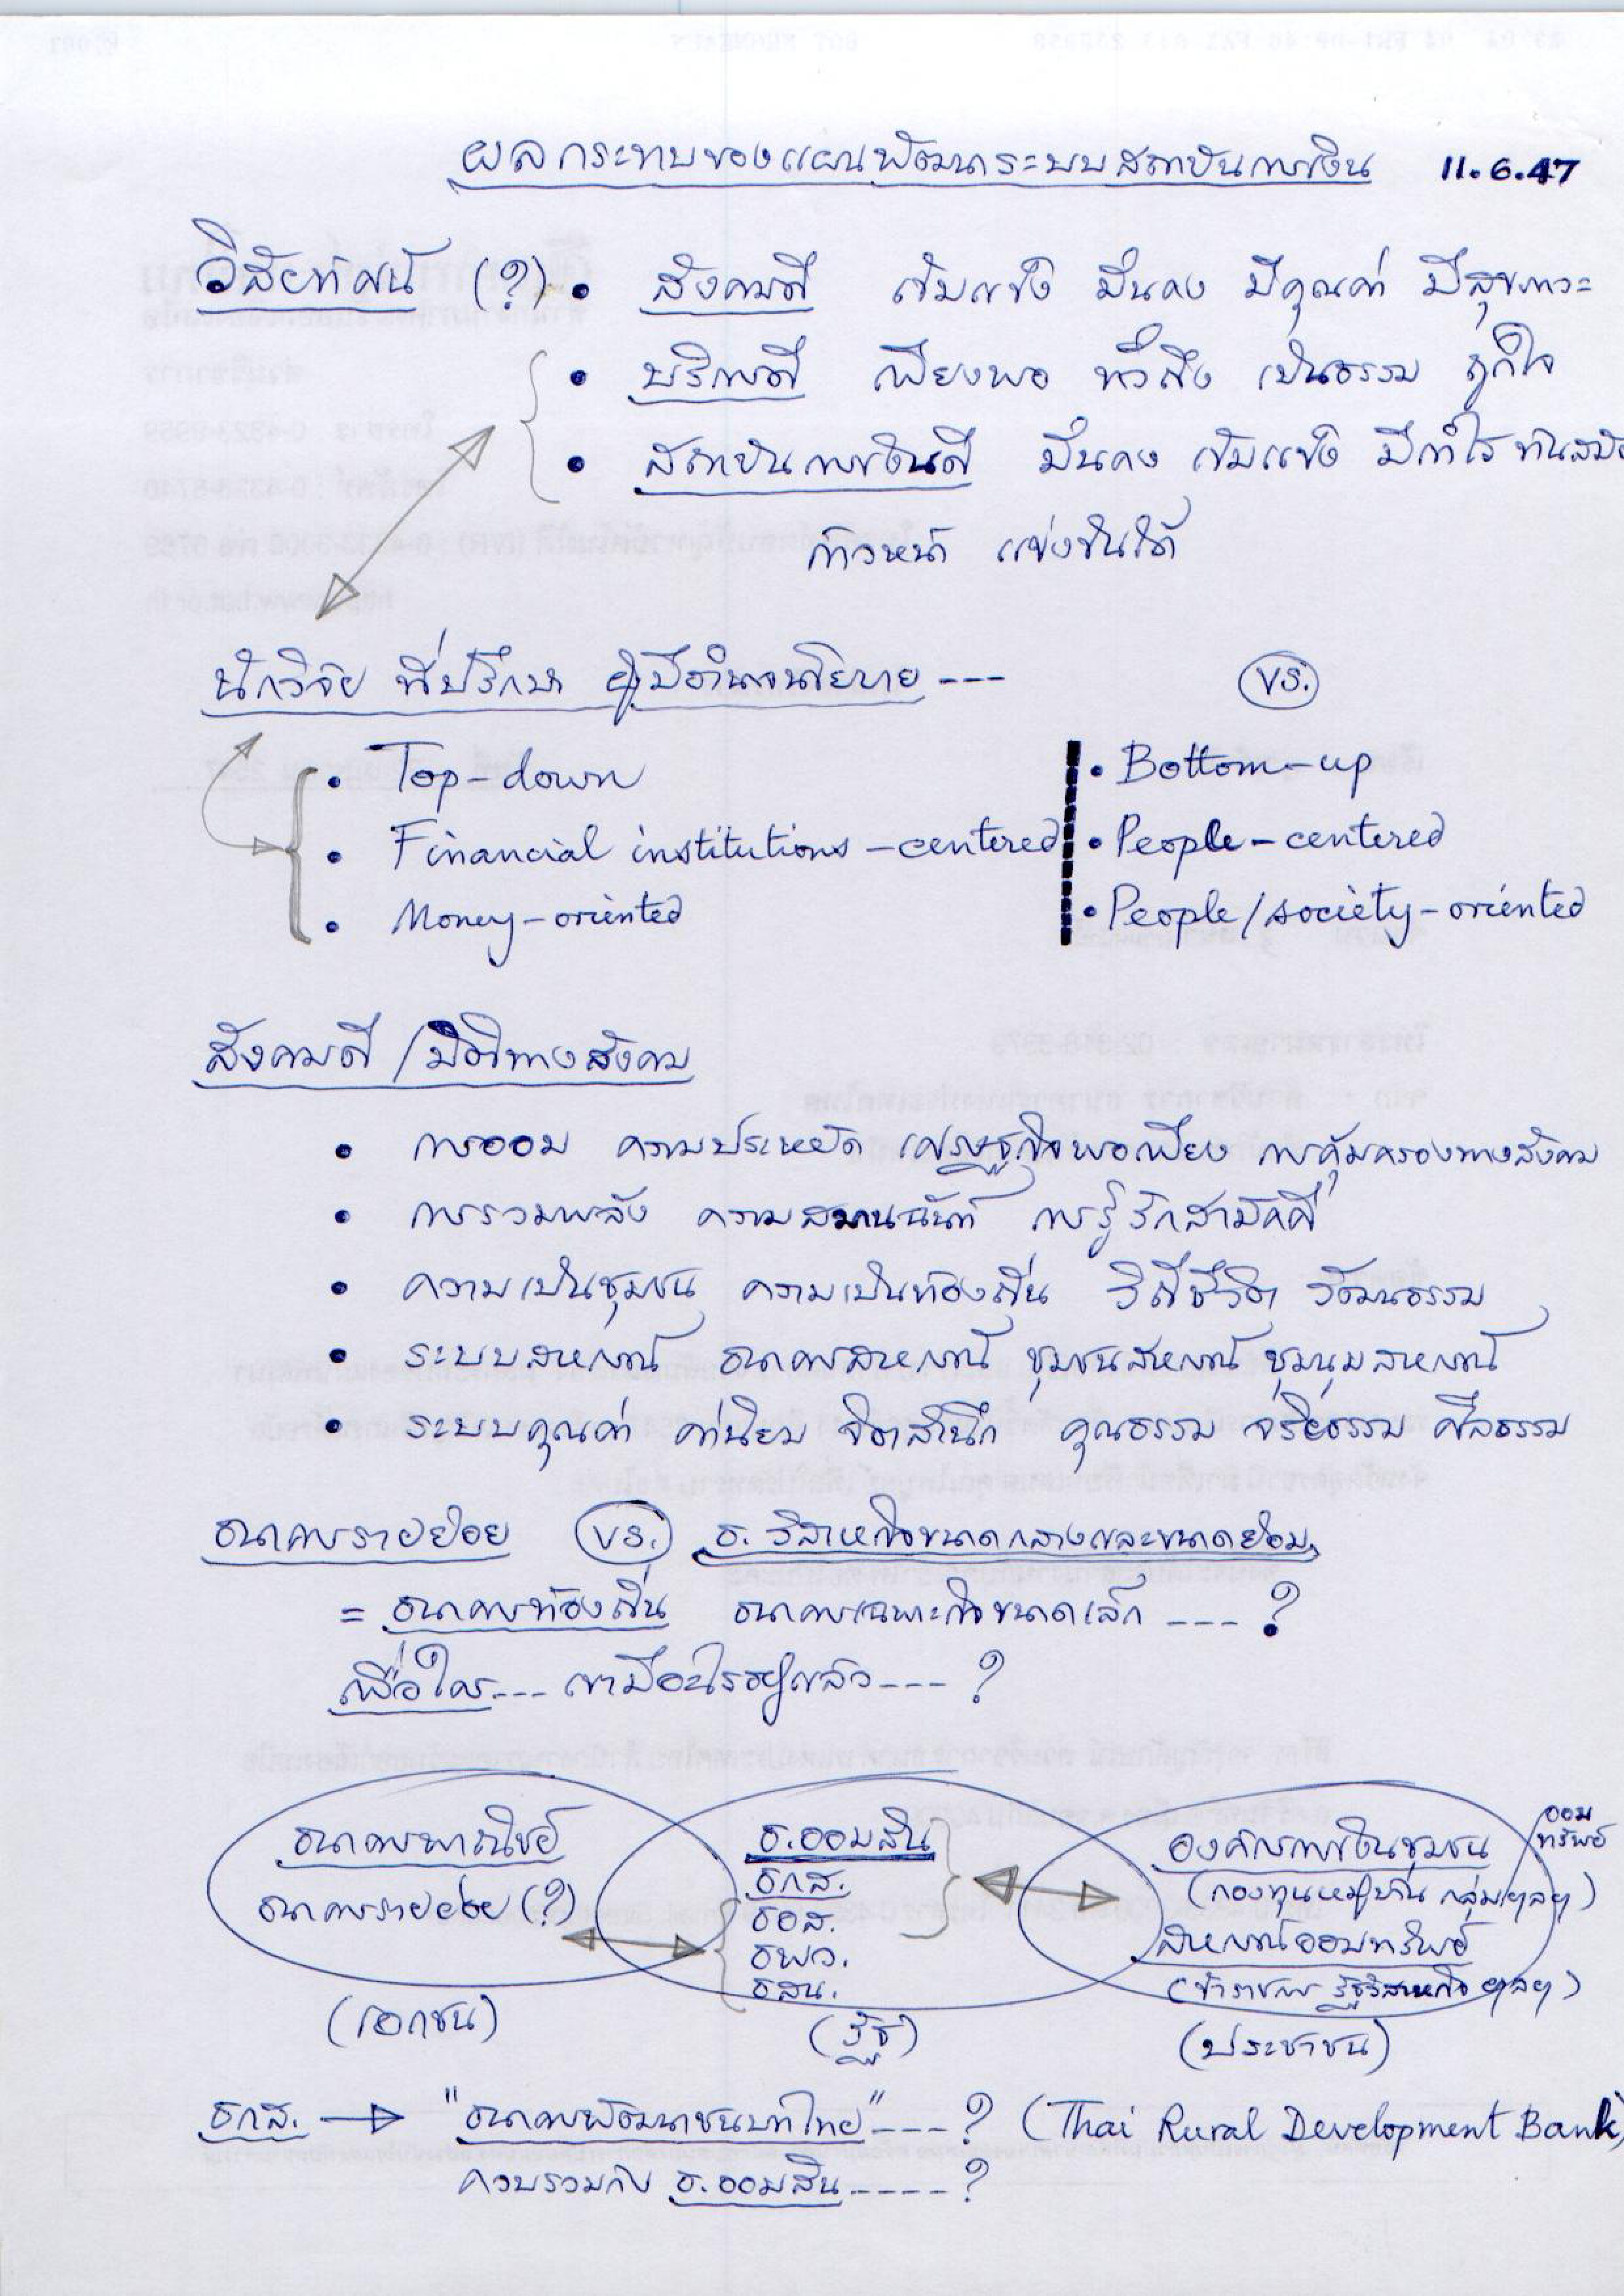 ผลกระทบของแผนพัฒนาระบบสถาบันการเงิน 11.6.47
วิสัยทัศน์ (?) • สังคมดี เข้มแข็ง มั่นคง มีคุณค่า มีสุขภาวะ
• บริการดี เพียงพอ ทั่วถึง เป็นธรรม ถูกใจ
• สถาบันการเงินดี มั่นคง เข้มแข็ง มีกำไร ทันสมัย
ก้าวหน้า แข่งขันได้
นักวิจัย ที่ปรึกษา ผู้มีอำนาจนโยบาย --- vs.
• Top-down • Bottom-up
• Financial institutions-centered • People-centered
• Money-oriented • People/society-oriented
สังคมดี / มิติทางสังคม
• การออม ความประหยัด เศรษฐกิจพอเพียง การคุ้มครองทางสังคม
• การรวมพลัง ความสมานฉันท์ การรู้รักสามัคคี
• ความเป็นชุมชน ความเป็นท้องถิ่น วิถีชีวิต วัฒนธรรม
• ระบบสหกรณ์ ธนาคารสหกรณ์ ชุมชนสหกรณ์ ชุมนุมสหกรณ์
• ระบบคุณค่า ค่านิยม จิตสำนึก คุณธรรม จริยธรรม ศีลธรรม
ธนาคารรายย่อย vs. ธ. วิสาหกิจขนาดกลางและขนาดย่อม
= ธนาคารท้องถิ่น ธนาคารเฉพาะกิจขนาดเล็ก --- ?
เพื่อใคร --- เขามีอะไรอยู่แล้ว --- ?
ธนาคารพาณิชย์ ธ.ออมสิน องค์กรการเงินชุมชน ออมทรัพย์
ธนาคารรายย่อย (?) ธกส. (กองทุนหมู่บ้าน กลุ่มฯลฯ)
ธอส. สหกรณ์ออมทรัพย์
ธพว.
ธสน. (ข้าราชการ รัฐวิสาหกิจ ฯลฯ)
(เอกชน) (รัฐ) (ประชาชน)
ธกส. → "ธนาคารพัฒนาชนบทไทย" --- ? (Thai Rural Development Bank)
ควบรวมกับ ธ.ออมสิน ---- ?